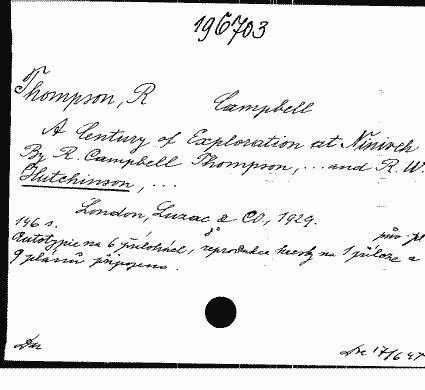 196703
Thompson, R Campbell
A Century of Exploration at Niniveh
By R. Campbell Thompson, ... and R. W.
Hutchinson, ...
London, Luzac & Co., 1929.
146 s. 8° pův. pl.
Autotypie na 6 přílohách, reprodukce kresby na 1 příloze a
9 plánů připojeno.